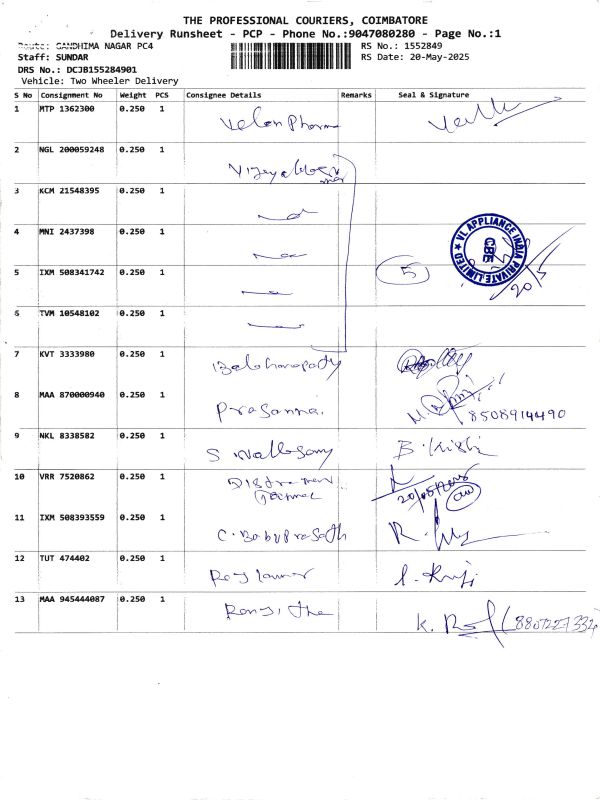 THE PROFESSIONAL COURIERS, COIMBATORE
Delivery Runsheet - PCP - Phone No.:9047080280 - Page No.:1
Route: GANDHIMA NAGAR PC4
RS No.: 1552849
Staff: SUNDAR
RS Date: 20-May-2025
DRS No.: DCJB155284901
Vehicle: Two Wheeler Delivery
S No Consignment No Weight PCS Consignee Details Remarks Seal & Signature
1 MTP 1362300 0.250 1 Velan Pharma
2 NGL 200059248 0.250 1
3 KCM 21548395 0.250 1
4 MNI 2437398 0.250 1
VL APPLIANCE INDIA PRIVATE LIMITED ★
CBE
5 IXM 508341742 0.250 1 5 20/5
6 TVM 10548102 0.250 1
7 KVT 3333980 0.250 1
8 MAA 870000940 0.250 1 Prasanna. 8508914490
9 NKL 8338582 0.250 1 S
10 VRR 7520862 0.250 1 20/05/2025
11 IXM 508393559 0.250 1 C. Babuprasath
12 TUT 474402 0.250 1
13 MAA 945444087 0.250 1